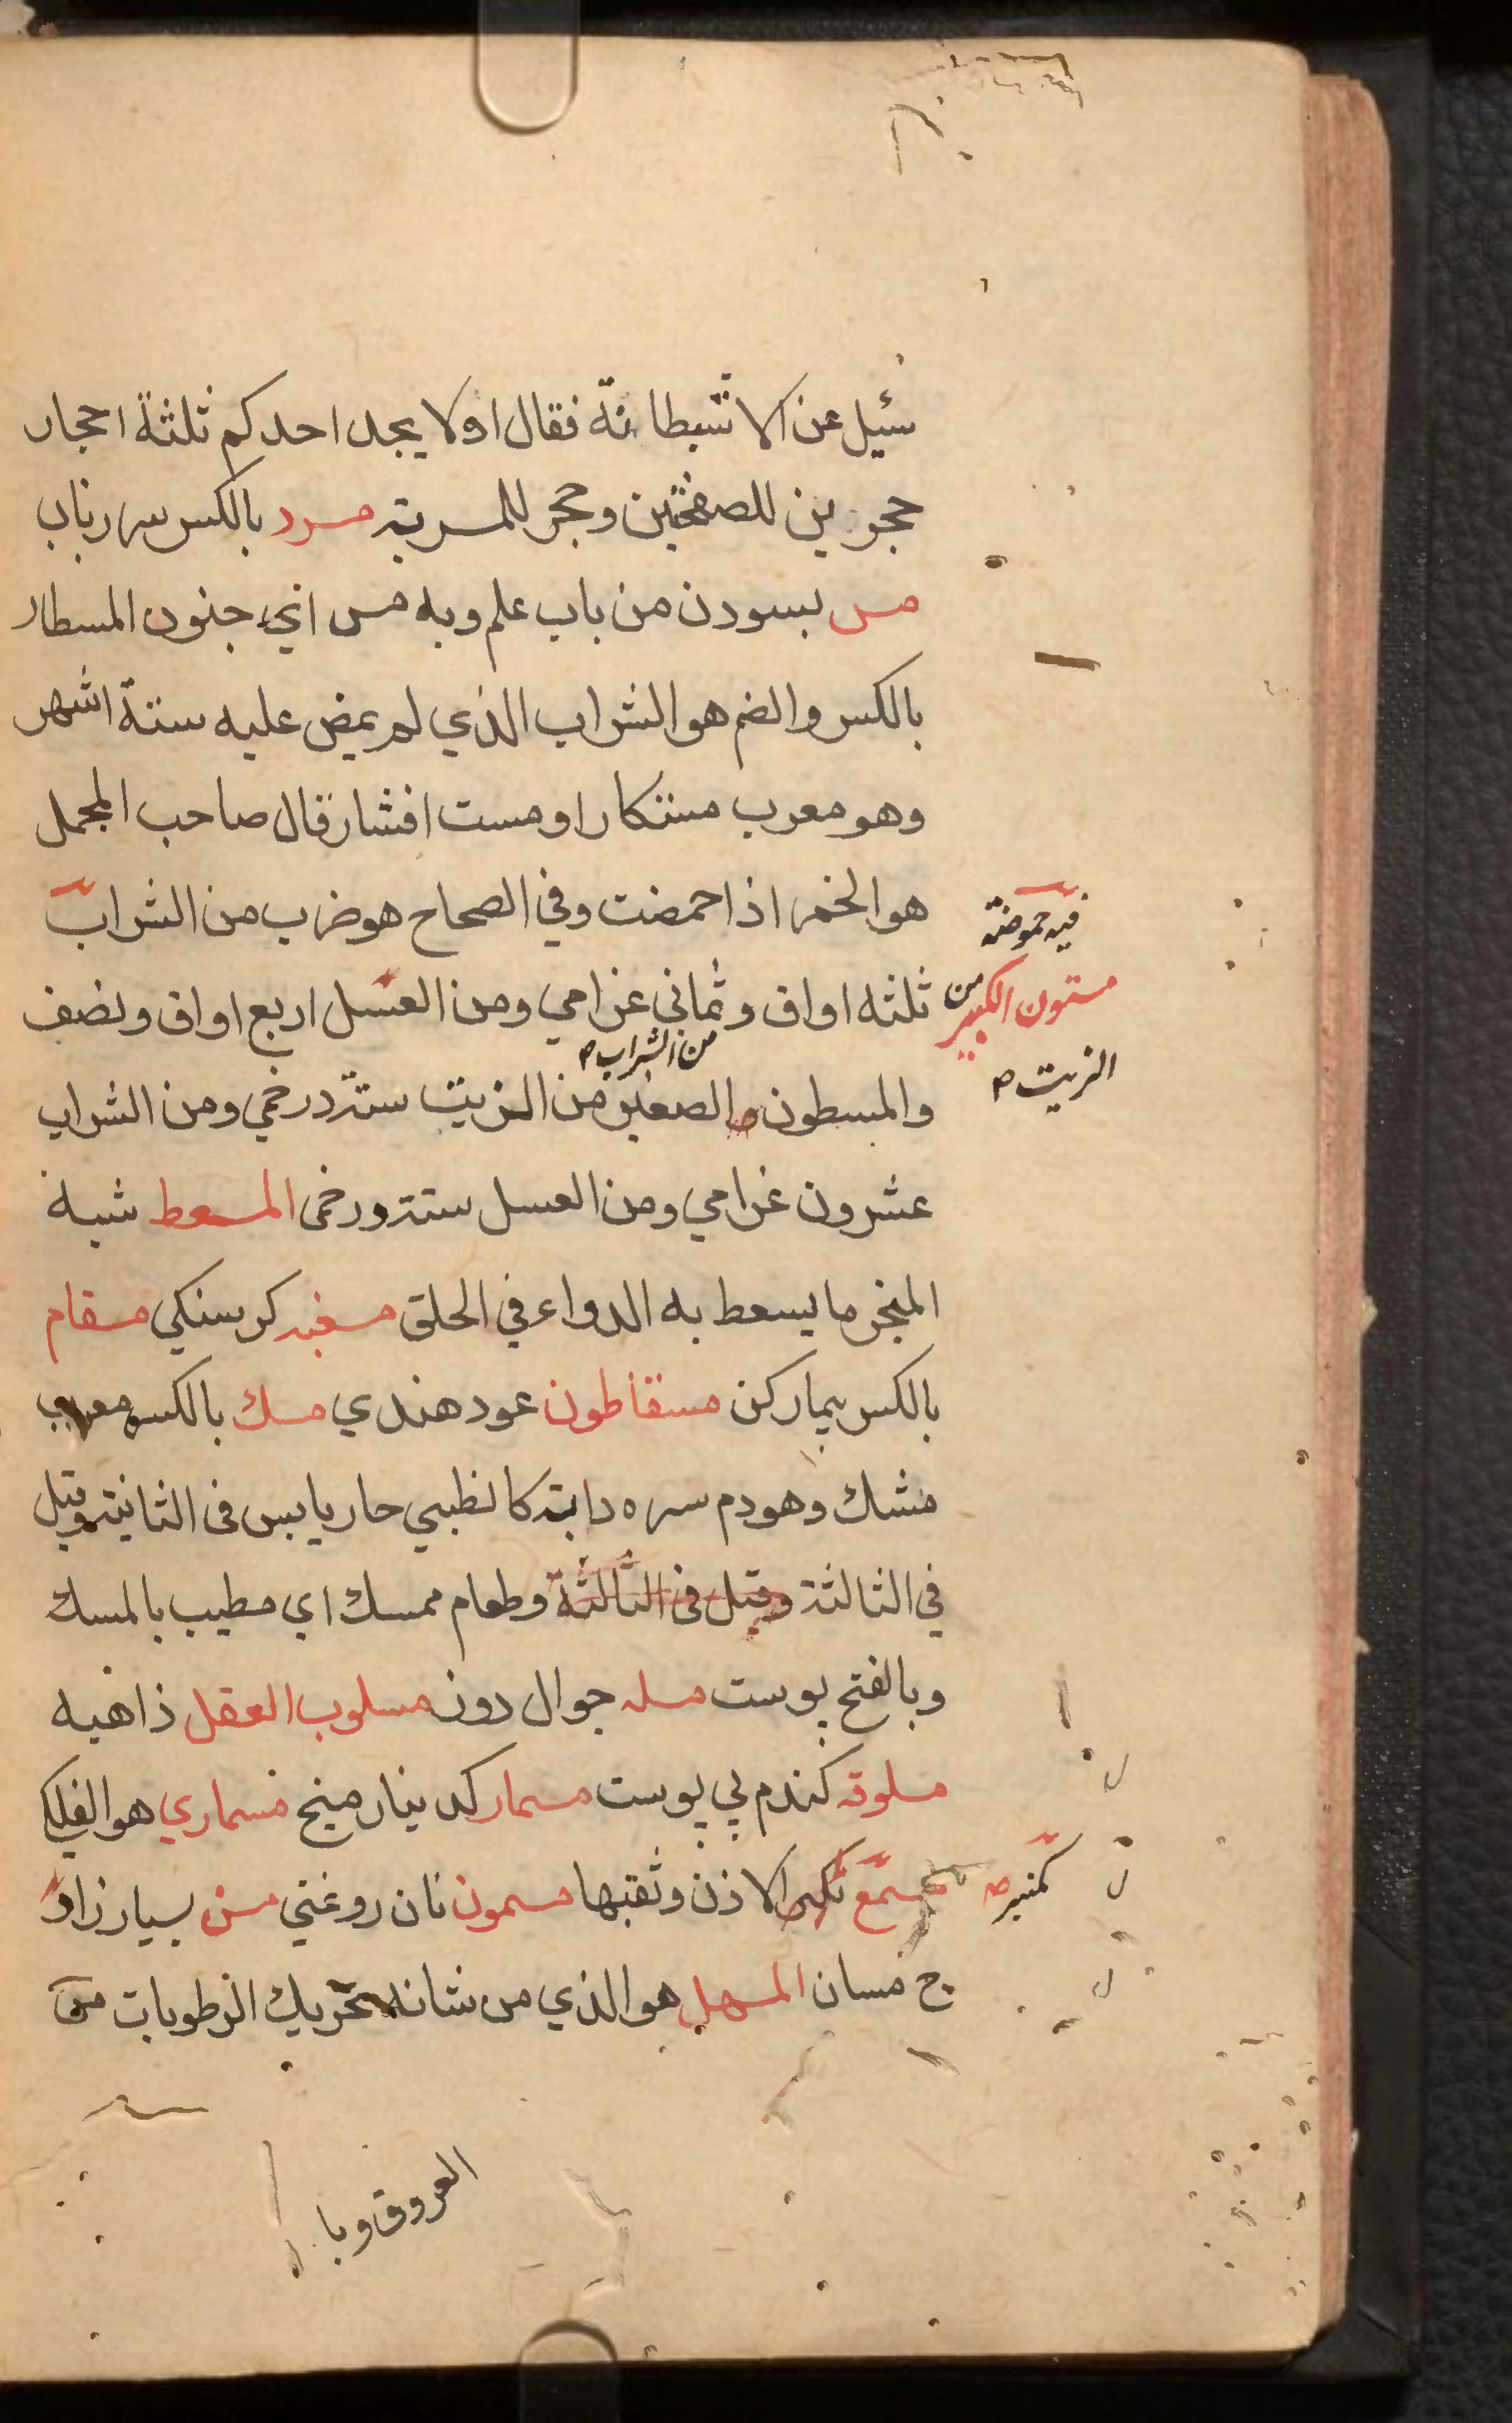 سئيل عن الاشبطانة فقال اولا يجد احدكم ثلثة احجار
حجرين للصفحتين وحجر للمسربة مسرد بالكسر سر رباب
مس بسودن من باب علم وبه مس اي جنون المسطار
بالكسر والضم هو الشراب الذي لم يمض عليه ستة اشهر
وهو معرب مستكار او مست افشار قال صاحب المجمل
هو الخمر اذا حمضت وفي الصحاح هو ضرب من الشراب
فيه حموضة
مستون الكبير من ثلثه اواق وثماني غرامي ومن العسل اربع اواق ونصف
الزيت ص
من الشراب ص
والمسطون الصغير من الزيت ستة درخمي ومن الشراب
عشرون غرامي ومن العسل ستة ورخمى المسعط شبه
المنخر ما يسعط به الدواء في الحلق مسغبه كرسنكي مسقام
بالكسر بيمار كن مسقاطون عود هندي مسك بالكسر معرب
مشك وهو دم سره دابة كالظبي حار يابس في الثانية وقيل
في الثالثة وقيل في الثالثة وطعام ممسك اي مطيب بالمسك
وبالفتح پوست مسله جوال دوز مسلوب العقل ذاهبه
مسلوقه كندم بي پوست مسمار كد نيار ميخ مسماري هو الفلك
مسمع كمنبر ص الاذن وثقبها مسمون نان روغني مسن بسيار زاو
ج مسان المسهل هو الذي من شانه تحريك الرطوبات من
العروق وبا